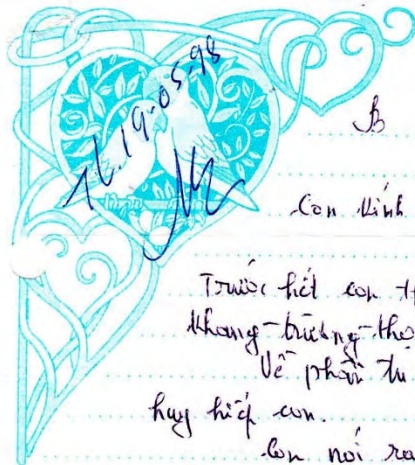 TL 19-05-98
B
Con kính
Trước hết con th
khang-trường-thọ
Về phần tu
huy hiếp con.
Con nói ra